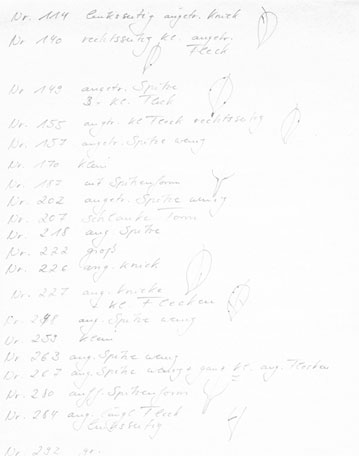 Nr. 114 linksseitig angetr. Knick
Nr. 140 rechtsseitig kl. angetr.
Fleck
Nr. 149 angetr. Spitze
3. kl. Fleck
Nr. 155 angtr. kl Fleck rechtsseitig
Nr. 157 angetr. Spitze wenig
Nr. 170 klein
Nr. 187 mit Spitzenform
Nr. 202 angetr. Spitze wenig
Nr. 207 schlanke Form
Nr. 218 ang. Spitze
Nr. 222 groß
Nr. 226 ang. Knick
Nr. 227 ang. Knicke
+ kl Flecken
Nr. 248 ang. Spitze wenig
Nr. 253 klein
Nr. 263 ang. Spitze wenig
Nr. 267 ang. Spitze wenig + ganz kl. ang. Flecken
Nr. 280 auff. Spitzenform
Nr. 284 ang. längl Fleck
linksseitig
Nr. 292 gr.